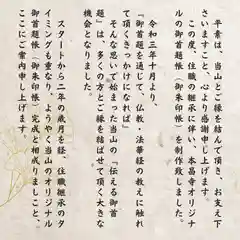 平素は、当山とご縁を結んで頂き、お支え下
さいますこと、心より感謝申し上げます。
この度、住職の継承に伴い、本昌寺オリジナ
ルの御首題帳（御朱印帳）を制作致しました。
令和三年十月より、
『御首題を通して、仏教・法華経の教えに触れ
て頂くきっかけになれば』
そんな思いで始まった当山の『伝える御首
題』は、多くの方とご縁を結ばせて頂く大きな
機会となりました。
スタートから二年の歳月を経、住職継承のタ
イミングも重なり、ようやく当山のオリジナル
御首題帳（御朱印帳）完成と相成りましこと、
ここにご案内申し上げます。